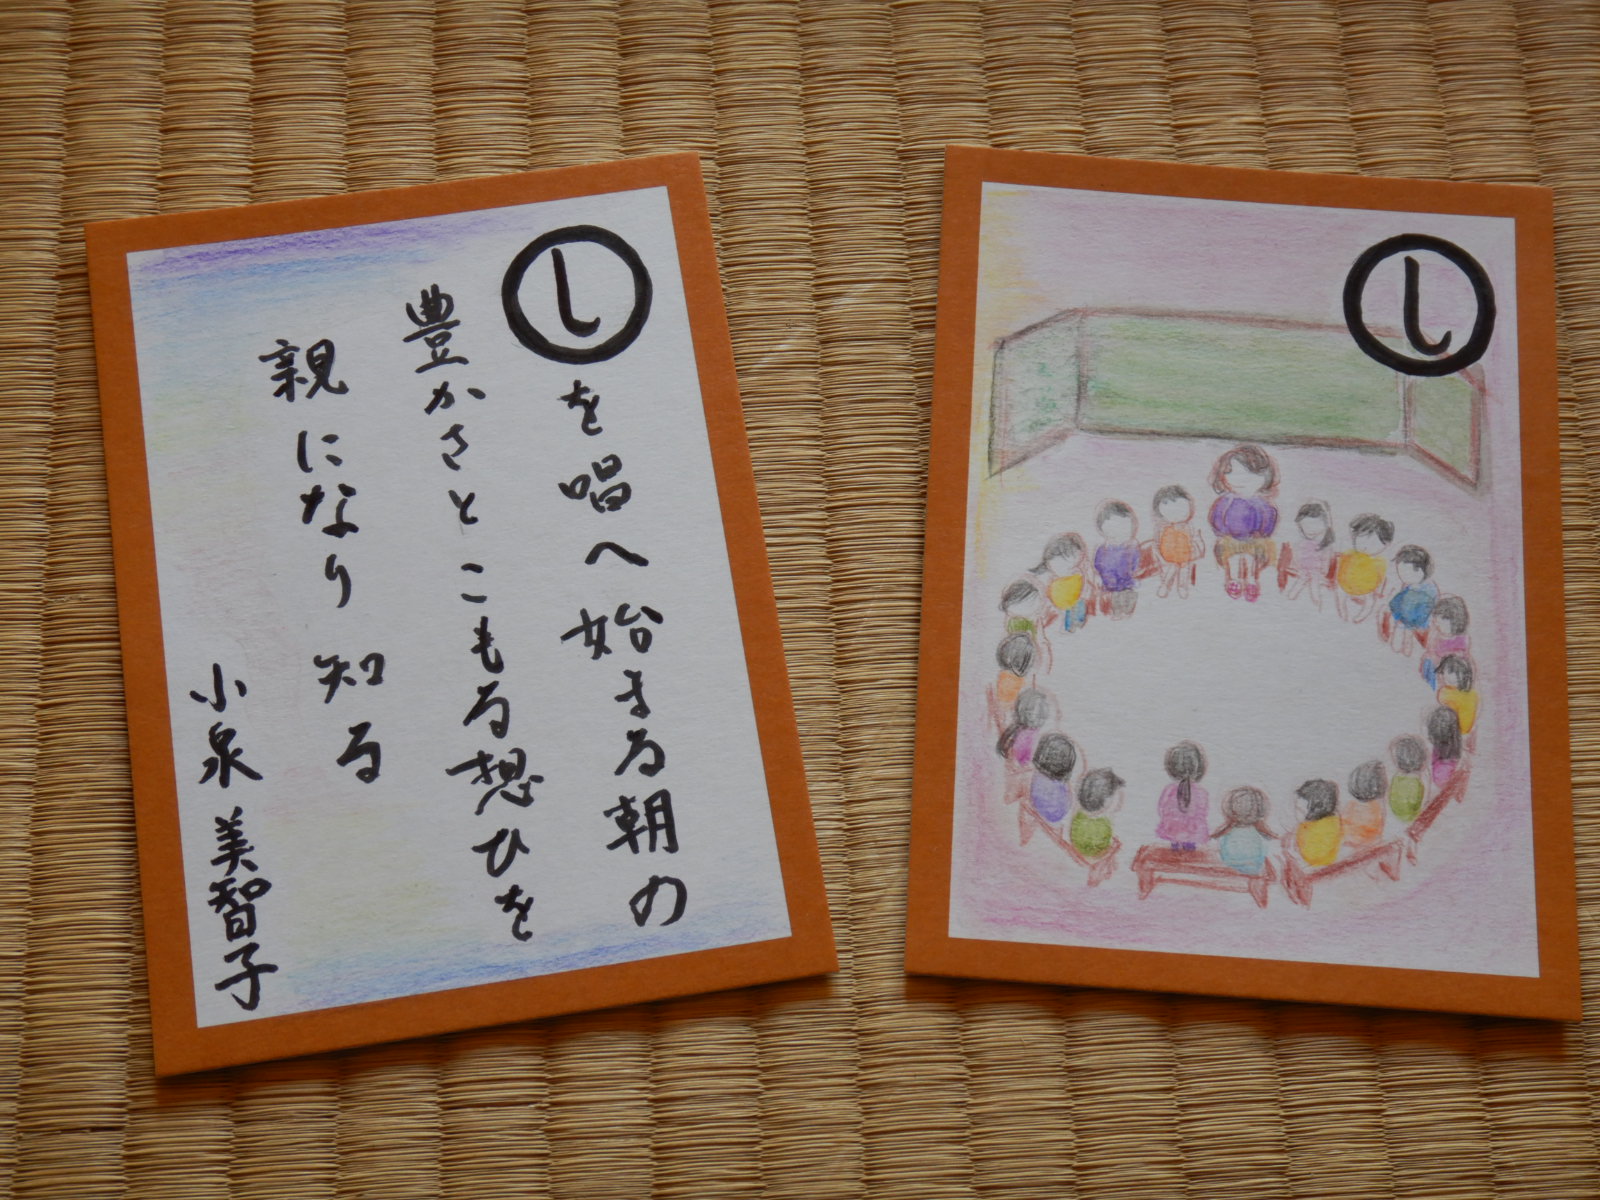 し
を唱へ始まる朝の
豊かさとこもる想ひを
親になり知る
小泉美智子
し